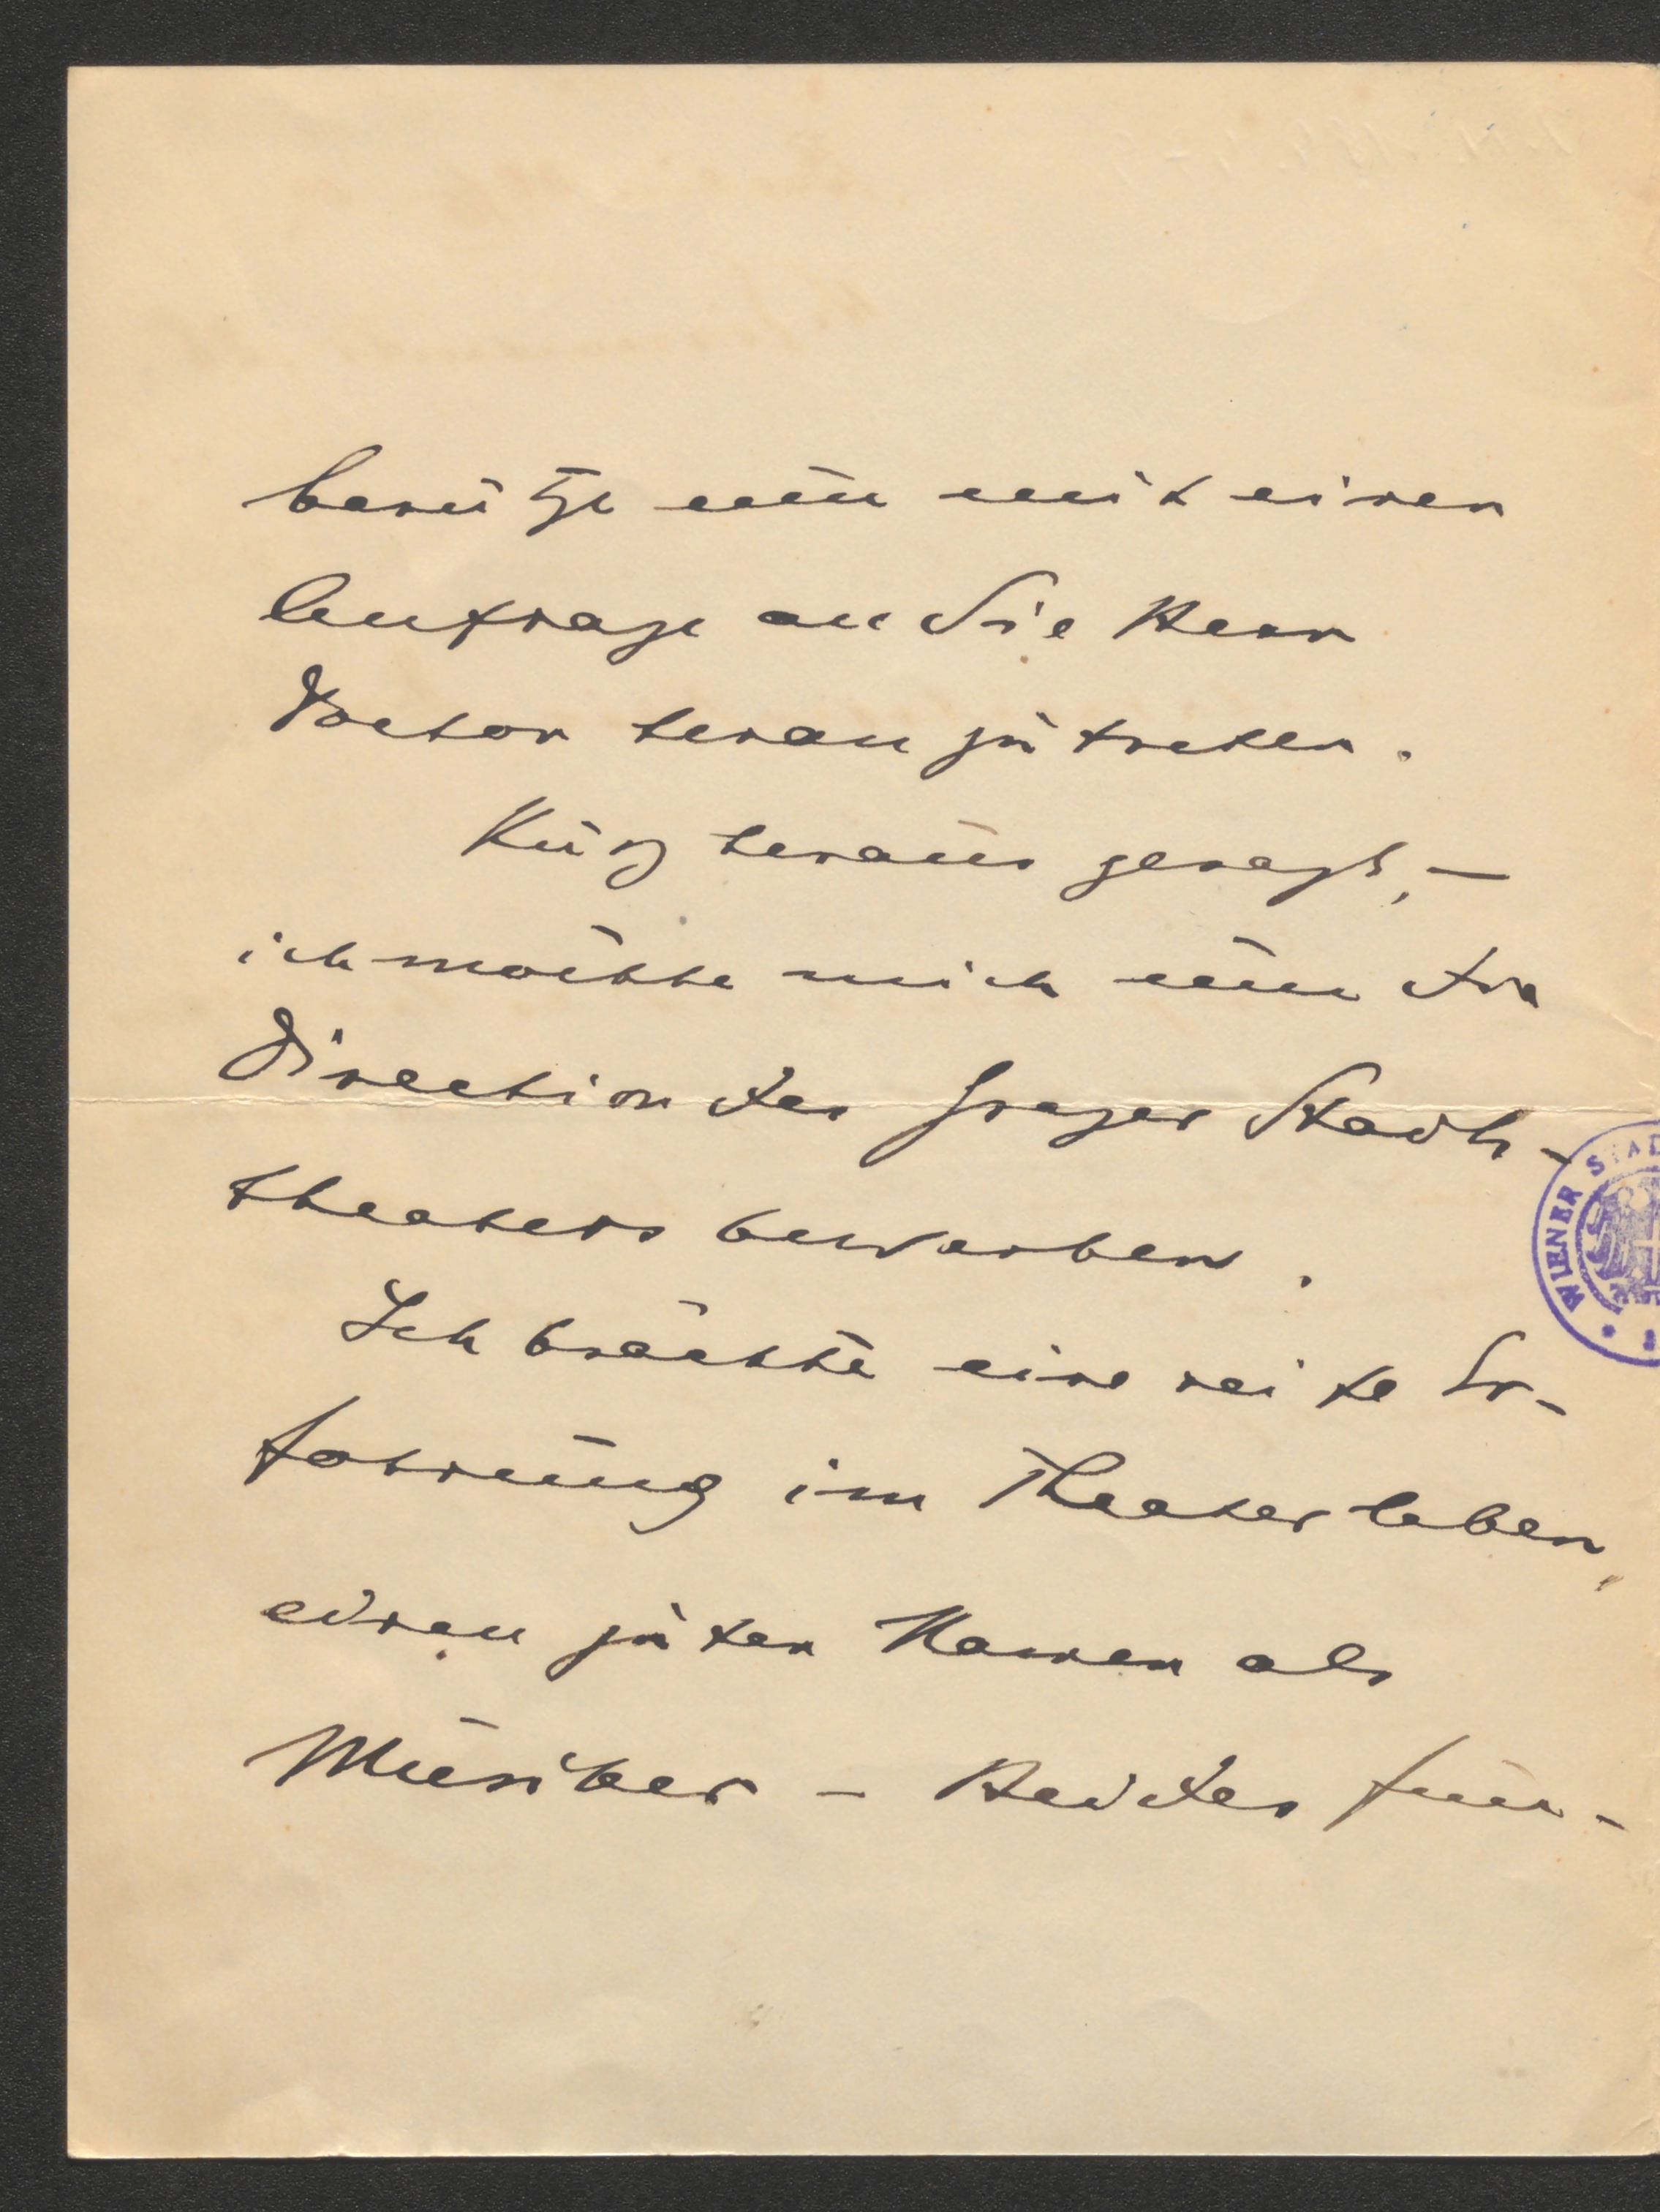 benütze um mit einer
Anfrage an Sie Herr
Doctor heranzutreten.
Kurz heraus gesagt, –
ich möchte mich um die
Direction des Grazer Stadt-
theaters bewerben.
Ich brächte eine reife Er-
fahrung im Theaterleben,
einen guten Namen als
Musiker – Beides fun-
WIENER STAD